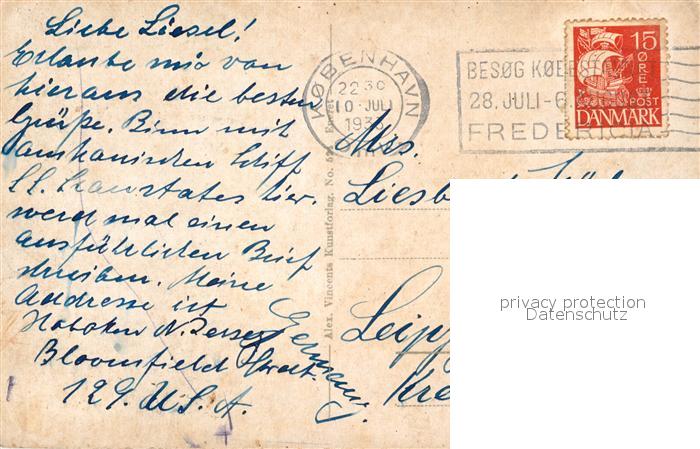 Liebe Liesel!
Erlaube mir von
hieraus die besten
Grüße. Binn mit
amkanischen Schiff
S.S. Scanstates hier.
werd mal einen
ausführlichen Brief
schreiben. Meine
Addresse ist
Hoboken N. Jersey
Bloomfield Street.
129. U.S.A.
Alex. Vincents Kunstforlag. No.
KØBENHAVN
22 30
10. JULI
193
BESØG KØBST
28. JULI-6.
FREDERICIA
15
ØRE
POST
DANMARK
Mrs.
Liesb
Leip
Kre
Germany.
privacy protection
Datenschutz